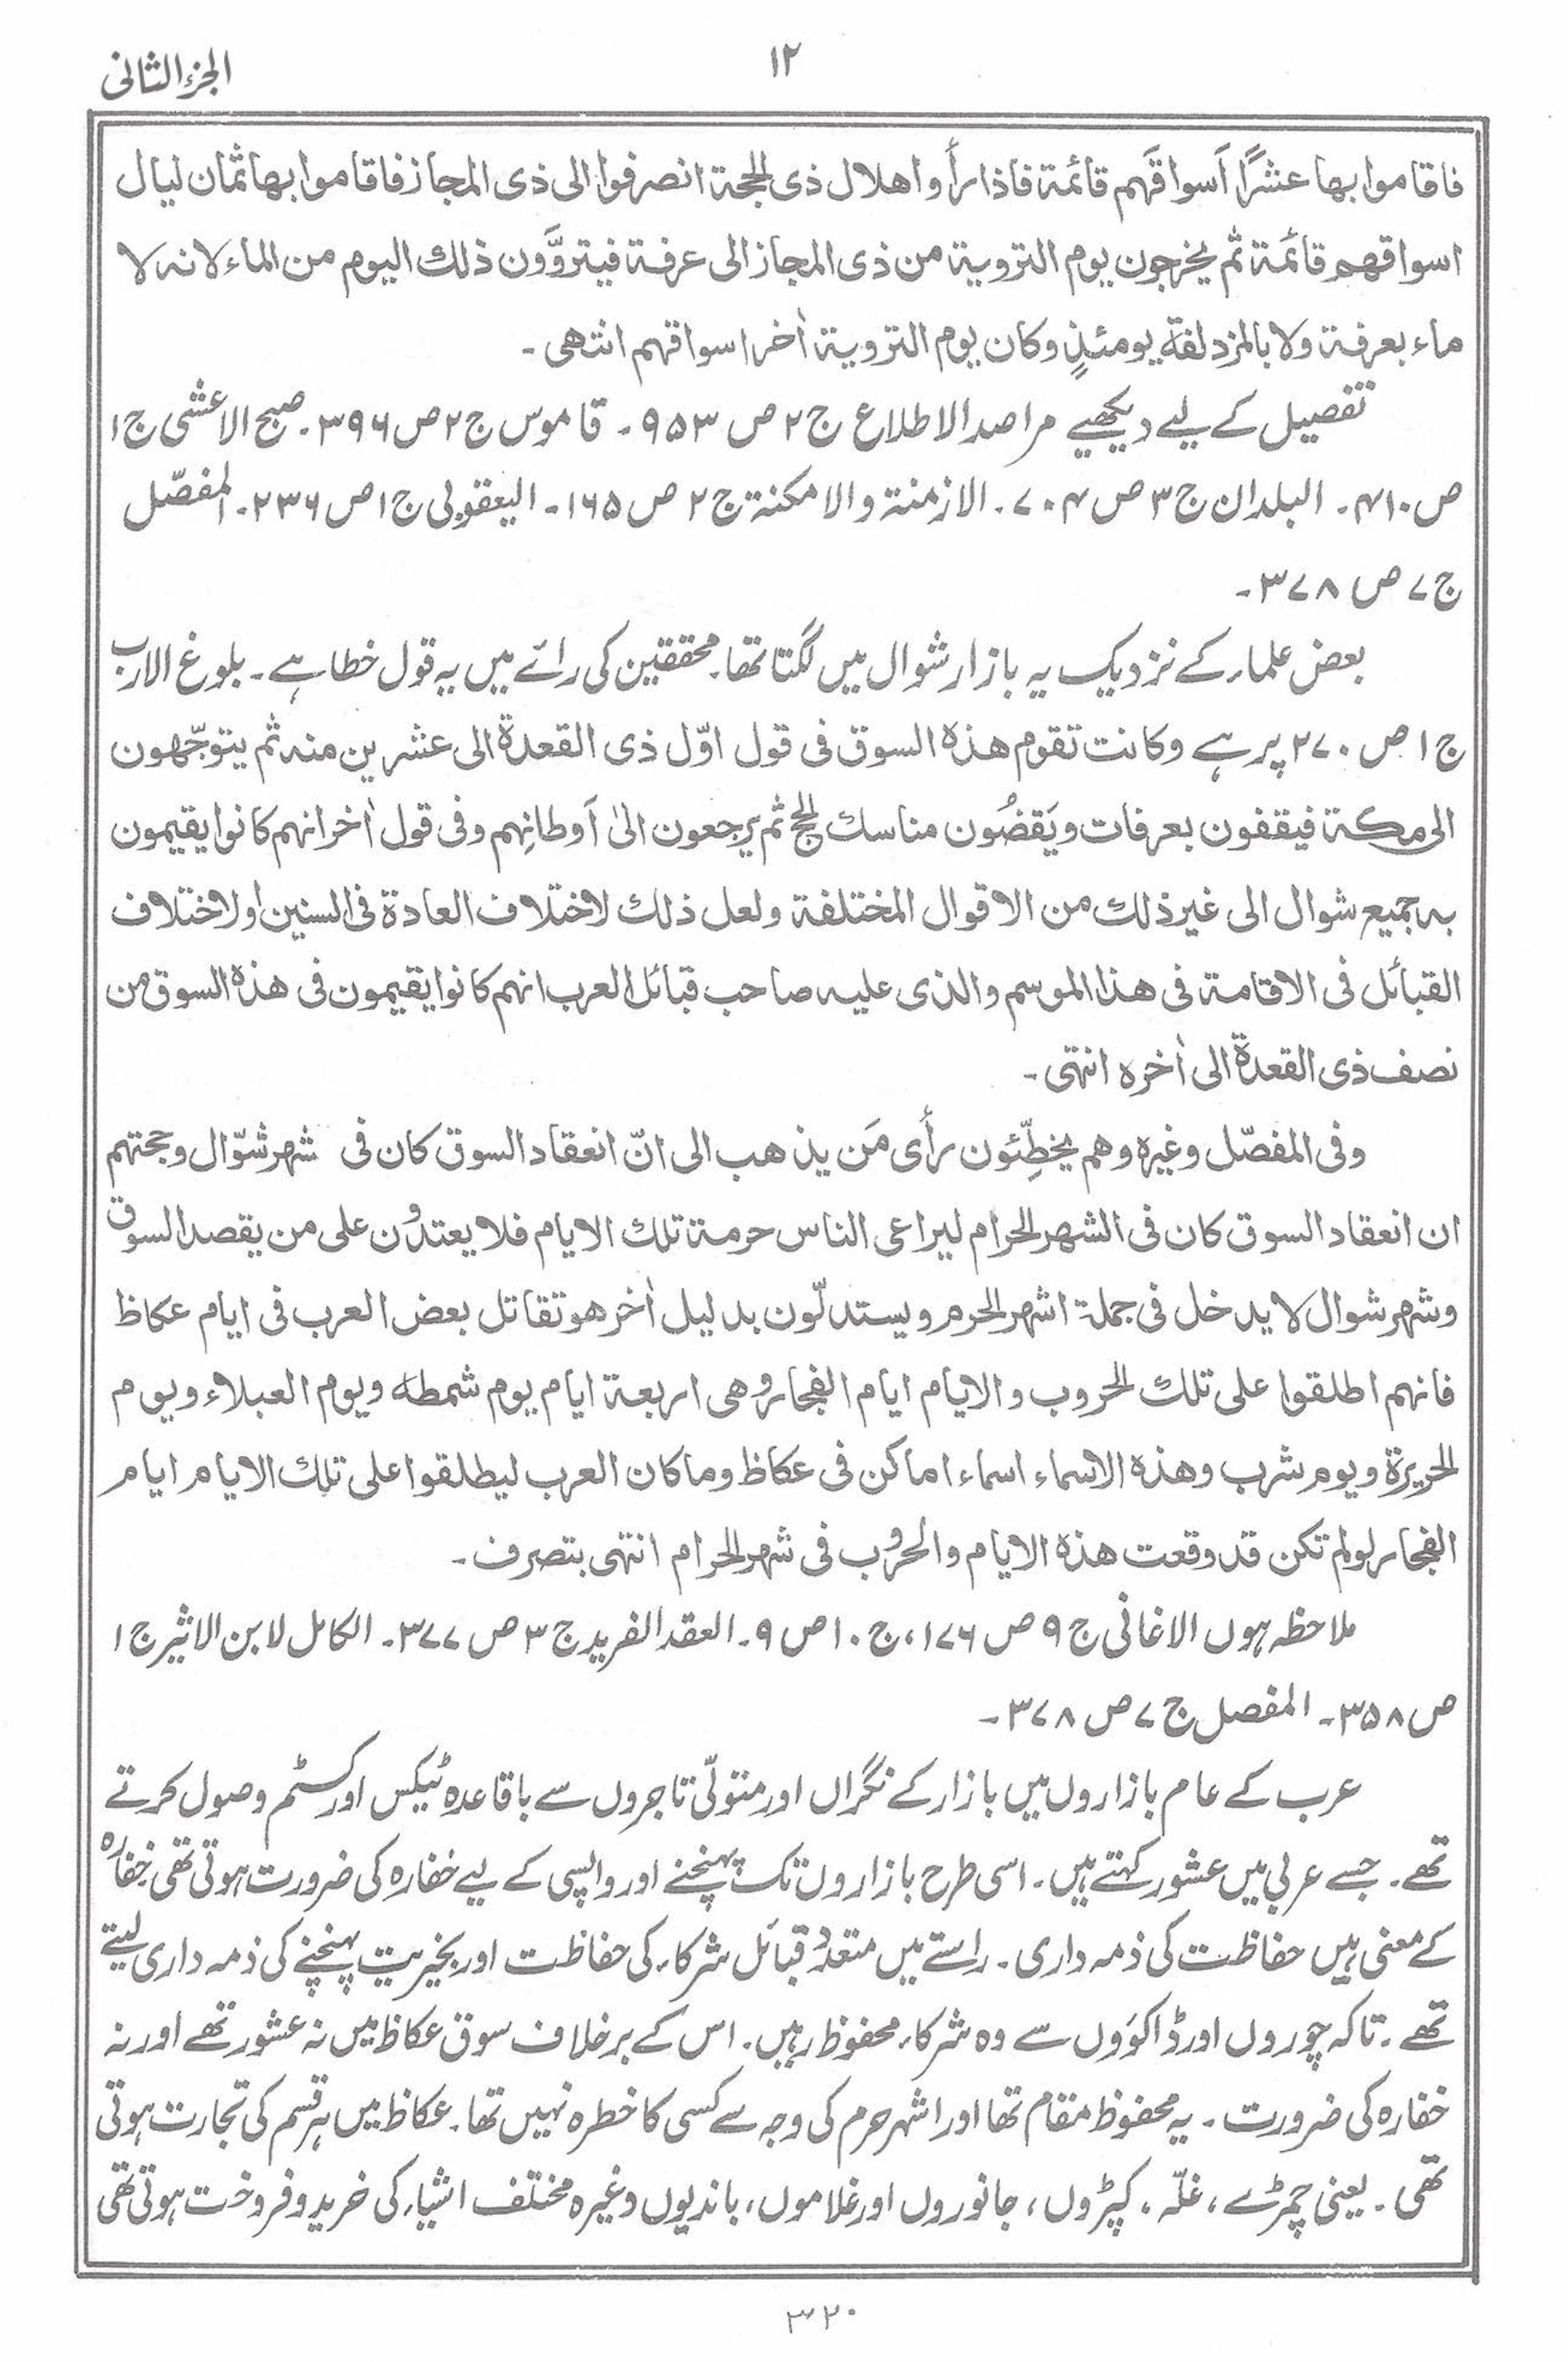 الجزء الثانی
۱۲
فاقاموا بها عشرًا اَسواقَهم قائمة فاذا رأوا هلال ذی الحجة انصرفوا الی ذی المجاز فاقاموا بها ثمان لیال
اسواقهم قائمة ثم یخرجون یوم الترویة من ذی المجاز الی عرفة فیتروَّون ذلك الیوم من الماء لانه لا
ماء بعرفة ولا بالمزدلفة یومئذٍ وکان یوم الترویة اٰخر اسواقهم انتهی ۔
تفصیل کے لیے دیکھیے مراصد الاطلاع ج ۲ ص ۹۵۳ ۔ قاموس ج ۲ ص ۳۹۶ ۔ صبح الاعشی ج ۱
ص ۴۱۰ ۔ البلدان ج ۳ ص ۷۰۴ ۔ الازمنة والامکنة ج ۲ ص ۱۶۵ ۔ الیعقوبی ج ۱ ص ۲۳۶ ۔ المفصّل
ج ۷ ص ۳۷۸ ۔
بعض علماء کے نزدیک یہ بازار شوال میں لگتا تھا۔ محققین کی رائے میں یہ قول خطا ہے ۔ بلوغ الارب
ج ۱ ص ۲۷۰ پر ہے وکانت تقوم هذه السوق فی قول اوّل ذی القعدة الی عشرین منه ثم یتوجّهون
الی مکة فیقفون بعرفات ویَقضُون مناسك الحج ثم یرجعون الیٰ اَوطانِهم وفی قول اٰخر انهم کانوا یقیمون
به جمیع شوال الی غیر ذلك من الاقوال المختلفة ولعل ذلك لاختلاف العادة فی السنین او لاختلاف
القبائل فی الاقامة فی هذا الموسم والذی علیه صاحب قبائل العرب انهم کانوا یقیمون فی هذه السوق من
نصف ذی القعدة الی اٰخره انتهی ۔
وفی المفصّل وغیره وهم یخطِّئون رأی مَن یذهب الی انّ انعقاد السوق کان فی شهر شوّال وحجتهم
ان انعقاد السوق کان فی الشهر الحرام لیراعی الناس حرمة تلك الایام فلا یعتدون علی من یقصد السوق
وشهر شوال لا یدخل فی جملة اشهر الحرم ویستدلّون بدلیل اٰخر هو تقاتل بعض العرب فی ایام عکاظ
فانهم اطلقوا علی تلك الحروب والایام ایام الفجار وهی اربعة ایام یوم شمطه ویوم العبلاء ویوم
الحریرة ویوم شرب وهذه الاسماء اسماء اماکن فی عکاظ وما کان العرب لیطلقوا علی تلك الایام ایام
الفجار لو لم تکن قد وقعت هذه الایام والحروب فی شهر الحرام انتهی بتصرف ۔
ملاحظہ ہوں الاغانی ج ۹ ص ۱۷۶، ج ۱۰ ص ۹ ۔ العقد الفرید ج ۳ ص ۳۷۷ ۔ الکامل لابن الاثیر ج ۱
ص ۳۵۸ ۔ المفصل ج ۷ ص ۳۷۸ ۔
عرب کے عام بازاروں میں بازار کے نگراں اور متولّی تاجروں سے باقاعدہ ٹیکس اور کسٹم وصول کرتے
تھے ۔ جسے عربی میں عشور کہتے ہیں ۔ اسی طرح بازاروں تک پہنچنے اور واپسی کے لیے خفارہ کی ضرورت ہوتی تھی خِفارہ
کے معنی ہیں حفاظت کی ذمہ داری ۔ راستے میں متعدد قبائل شرکاء کی حفاظت اور بخیریت پہنچنے کی ذمہ داری لیتے
تھے ۔ تاکہ چوروں اور ڈاکوَوں سے وہ شرکاء محفوظ رہیں ۔ اس کے برخلاف سوق عکاظ میں نہ عشور تھے اور نہ
خفارہ کی ضرورت ۔ یہ محفوظ مقام تھا اور اشہر حرم کی وجہ سے کسی کا خطرہ نہیں تھا ۔ عکاظ میں ہر قسم کی تجارت ہوتی
تھی ۔ یعنی چمڑے ، غلّہ ، کپڑوں ، جانوروں اور غلاموں ، باندیوں وغیرہ مختلف اشیاء کی خرید و فروخت ہوتی تھی
۳۲۰